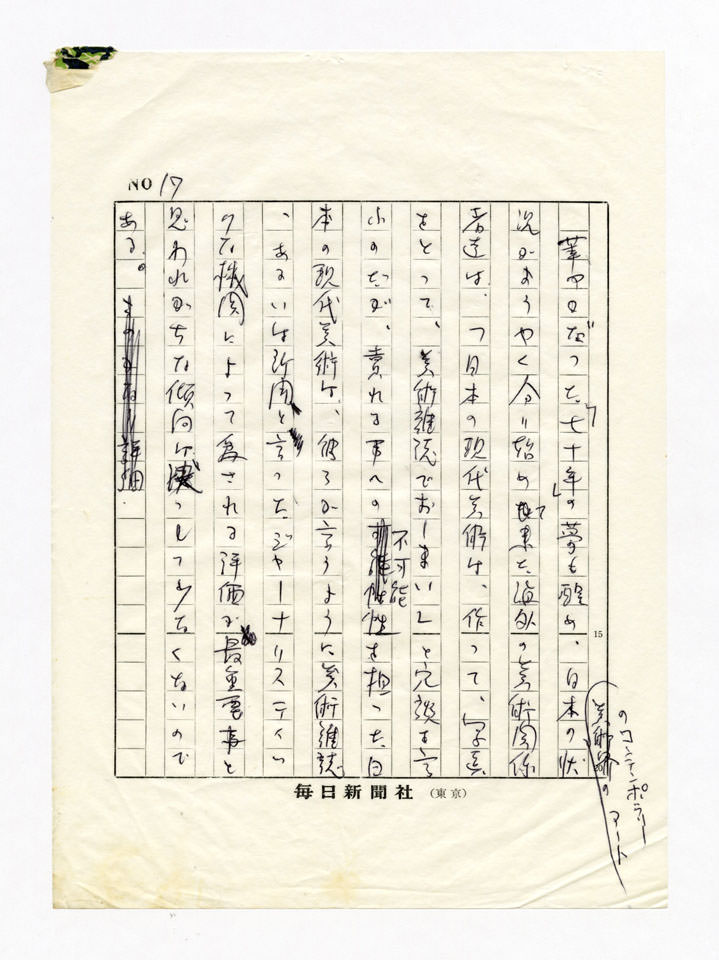 NO 17
華やかだった「七十年」の夢も醒め、日本の状
況がようやく分り始めて来た海外の美術関係
者達は、「日本の現代美術は、作って、写真
をとって、美術雑誌でおしまい」と冗談を言
うのだが、売れる事への不可能性を担った日
本の現代美術は、彼らが言うように美術雑誌
、あるいは新聞と言ったジャーナリスティッ
クな機関によって為される評価が最重要事と
思われがちな傾向は決して少なくないので
ある。
のコンテンポラリーアート
美術界の
15
毎日新聞社(東京)